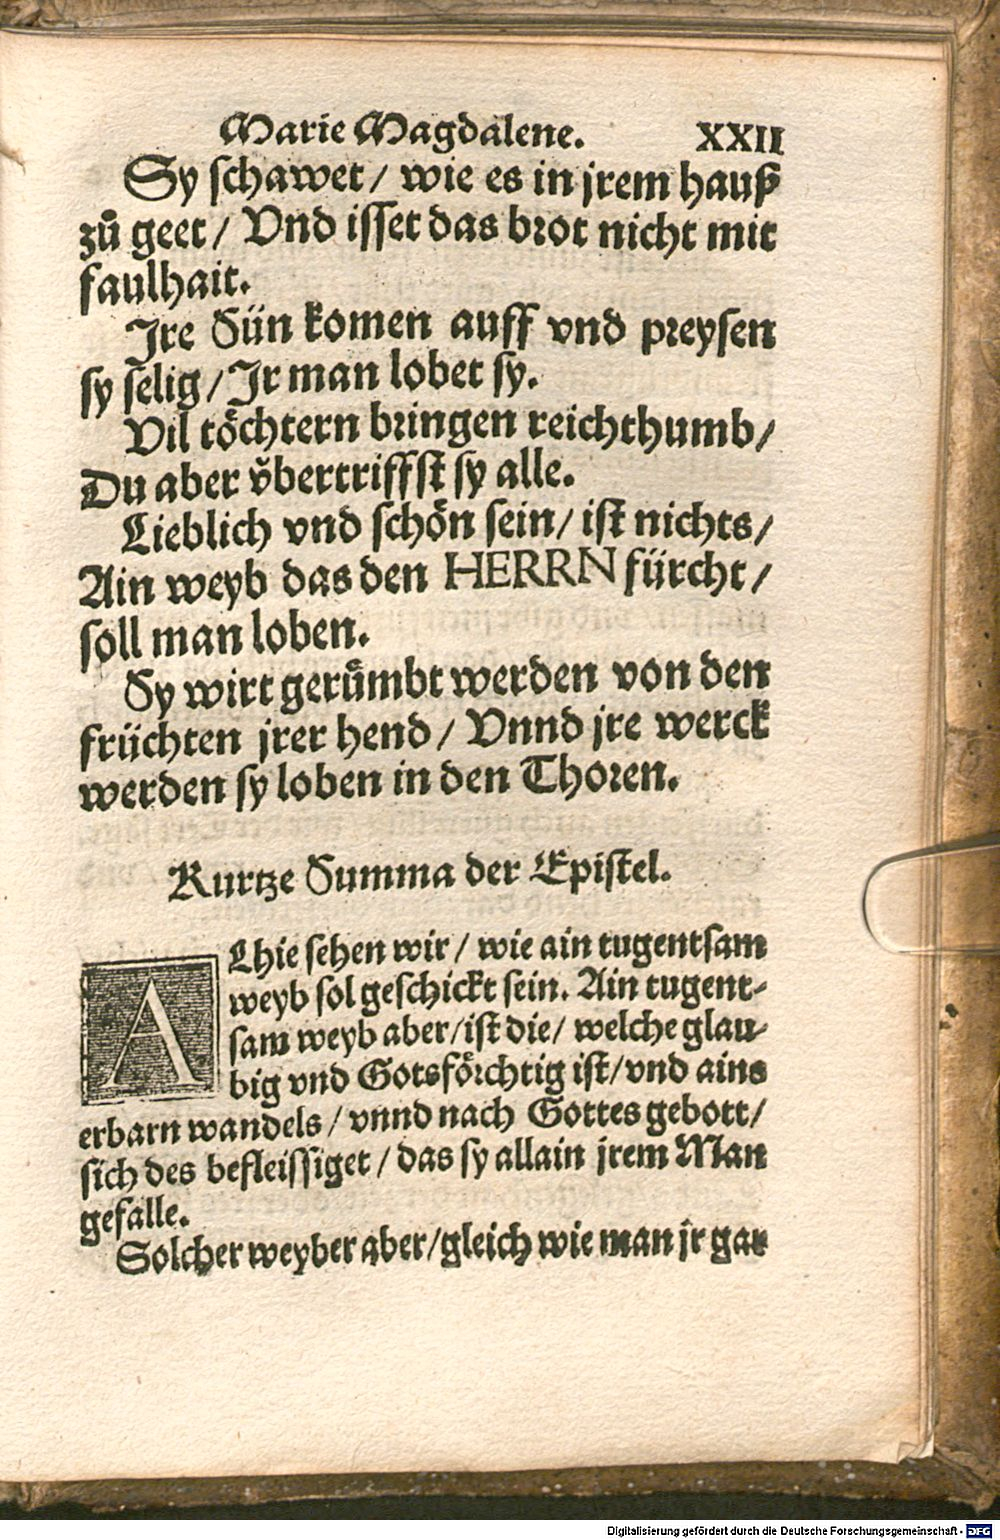 Marie Magdalene. XXII
Sy schawet / wie es in jrem hauß
zů geet / Vnd isset das brot nicht mit
faulhait.
Jre Sün komen auff vnd preysen
sy selig / Jr man lobet sy.
Vil töchtern bringen reichthumb /
Du aber v̊bertriffst sy alle.
Lieblich vnd schön sein / ist nichts /
Ain weyb das den HERRN fürcht /
soll man loben.
Sy wirt gerümbt werden von den
früchten jrer hend / Vnnd jre werck
werden sy loben in den Thoren.
Kurtze Summa der Epistel.
ALhie sehen wir / wie ain tugentsam
weyb sol geschickt sein. Ain tugent-
sam weyb aber / ist die / welche glau-
big vnd Gotsförchtig ist / vnd ains
erbarn wandels / vnnd nach Gottes gebott /
sich des befleissiget / das sy allain jrem Man
gefalle.
Solcher weyber aber / gleich wie man jr gar
Digitalisierung gefördert durch die Deutsche Forschungsgemeinschaft - DFG